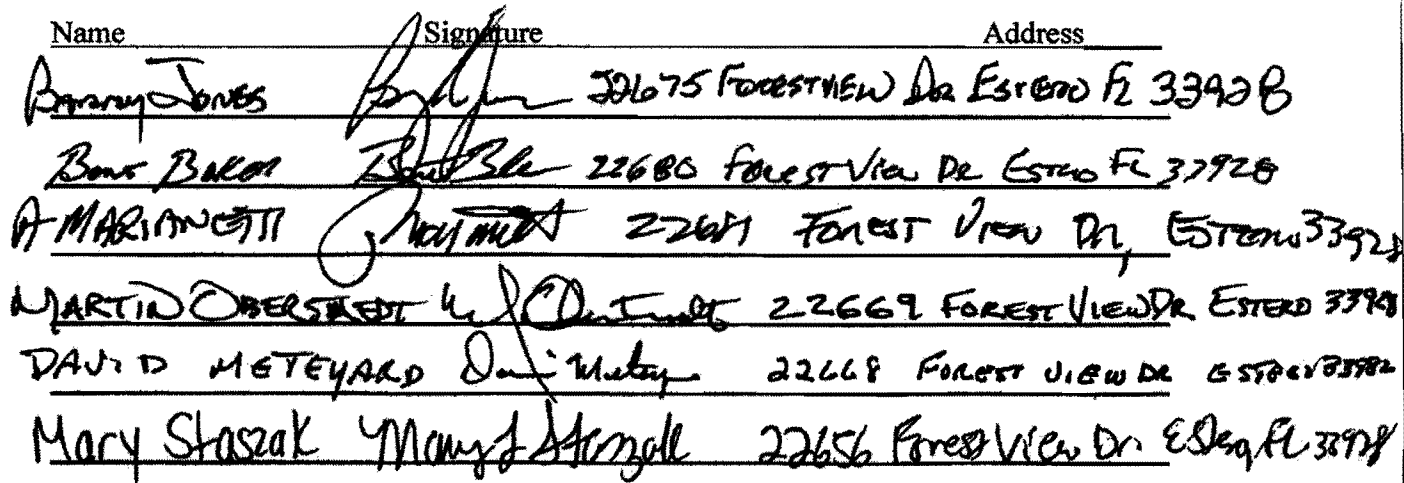 Name Signature Address
Barry Jones 22675 FORESTVIEW DR ESTERO FL 33928
BAKER 22680 FOREST VIEW DR ESTERO FL 33928
A MARIANETTI FOREST VIEW DR, ESTERO 33928
MARTIN OBERSTEDT 22669 FOREST VIEW DR ESTERO 33928
DAVID METEYARD 22668 FOREST VIEW DR ESTERO
Mary Staszak Mary L Staszak 22656 Forest View Dr. FL 33928